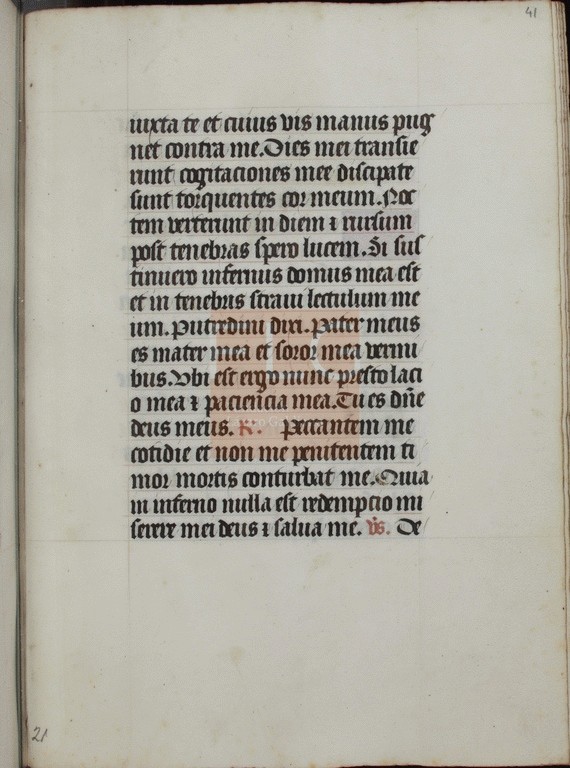 41
iuxta te et cuius vis manus pug
net contra me. Dies mei transie
runt cogitaciones mee discipate
sunt torquentes cor meum. Noc
tem verterunt in diem ⁊ rursum
post tenebras spero lucem. Si sus
tinuero infernus domus mea est
et in tenebris straui lectulum me
um. Putredini dixi. Pater meus
es mater mea et soror mea vermi
bus. Vbi est ergo nunc prestolaci
o mea ⁊ paciencia mea. Tu es dñe
deus meus. R. Peccantem me
cotidie et non me penitentem ti
mor mortis conturbat me. Quia
in inferno nulla est redempcio mi
serere mei deus ⁊ salua me. vs. De
21